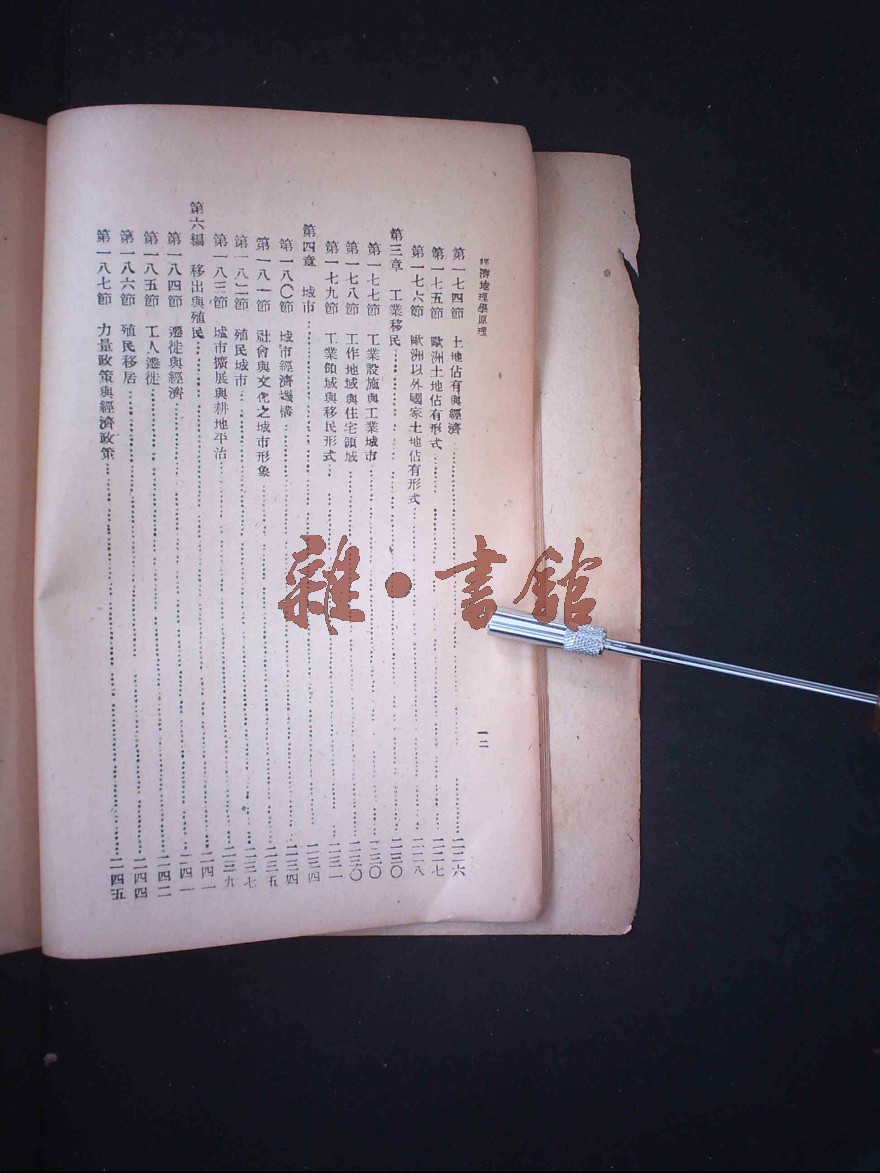 經濟地理學原理
一二
第一七四節 土地佔有與經濟……二二六
第一七五節 歐洲土地佔有形式……二二七
第一七六節 歐洲以外國家土地佔有形式……二二八
第三章 工業移民……二三〇
第一七七節 工業設施與工業城市……二三〇
第一七八節 工作地域與住宅領域……二三〇
第一七九節 工業領域與移民形式……二三一
第四章 城市……二三四
第一八〇節 城市經濟機構……二三四
第一八一節 社會與文化之城市形象……二三五
第一八二節 殖民城市……二三七
第一八三節 城市擴展與耕地平治……二三九
第六編 移出與殖民……二四一
第一八四節 遷徙與經濟……二四一
第一八五節 工人遷徙……二四二
第一八六節 殖民移居……二四四
第一八七節 力量政策與經濟政策……二四五
雜·書館